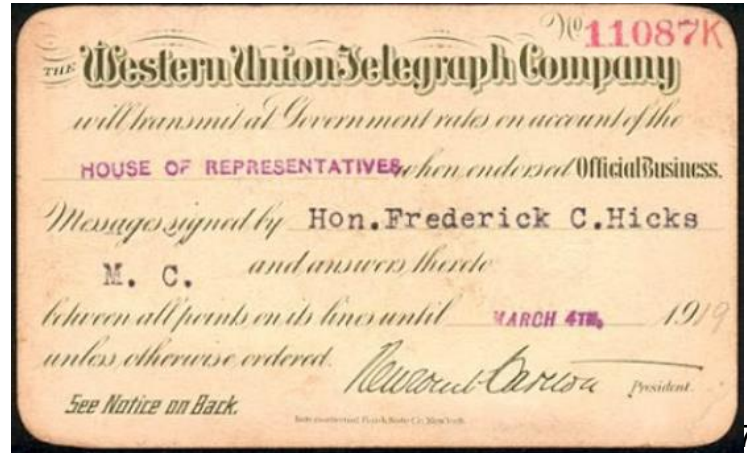 No 11087K
THE Western Union Telegraph Company
will transmit at Government rates on account of the
HOUSE OF REPRESENTATIVES when endorsed Official Business.
Messages signed by Hon.Frederick C.Hicks
M. C. and answers thereto
between all points on its lines until MARCH 4TH, 1919
unless otherwise ordered.
Newcomb Carlton President.
See Notice on Back.
International Bank Note Co. New York.
7